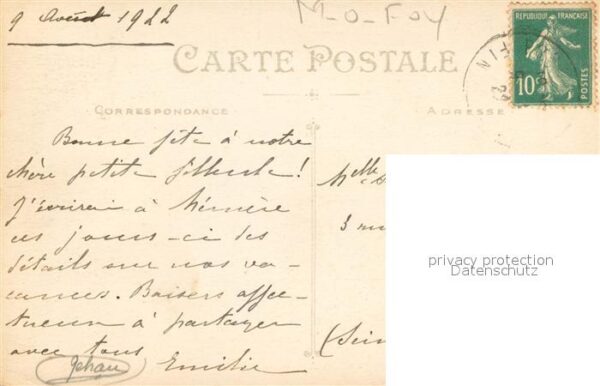 9 Août 1922
M-O-FOY
RÉPUBLIQUE FRANÇAISE
10c
POSTES
CARTE POSTALE
CORRESPONDANCE
ADRESSE
Bonne fête à notre
chère petite filleule!
J'écrirai à Mémère
ces jours-ci des
détails sur nos va-
cances. Baisers affec-
tueux à partager
avec tous Emilie
Melle
3 rue
(Sein
privacy protection
Datenschutz